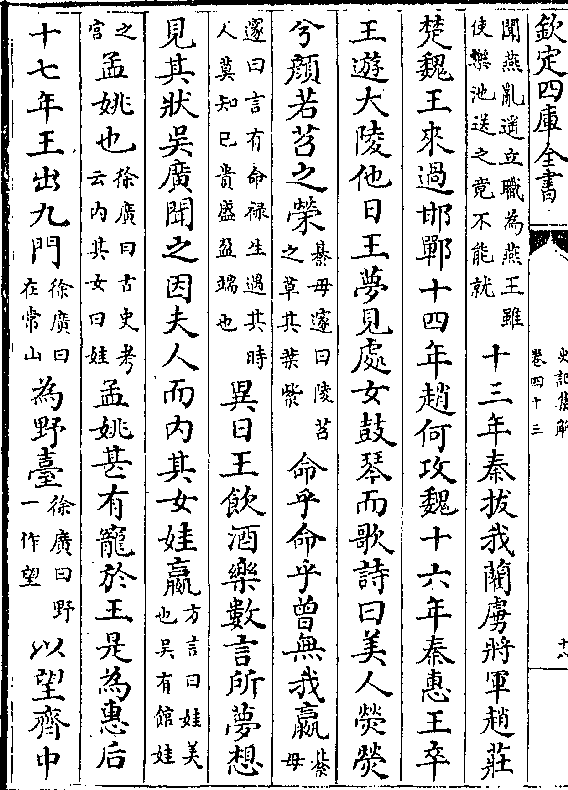 欽定四庫全書
史記集解
卷四十三
十八
聞燕亂遣立職為燕王雖
使樂池送之竟不能就
十三年秦拔我藺虜將軍趙莊
楚魏王來過邯鄲十四年趙何攻魏十六年秦惠王卒
王遊大陵他日王夢見處女鼓琴而歌詩曰美人熒熒
兮顔若苕之榮
綦毋邃曰陵苕
之草其葉紫
命乎命乎曾無我嬴
綦毋
邃曰言有命禄生遇其時
人莫知已貴盛盈端也
異日王飲酒樂數言所夢想
見其狀吳廣聞之因夫人而内其女娃嬴
方言曰娃美
也吳有館娃
之
宫
孟姚也
徐廣曰古史考
云内其女曰娃
孟姚甚有寵於王是為惠后
十七年王出九門
徐廣曰
在常山
為野臺
徐廣曰野
一作望
以望齊中